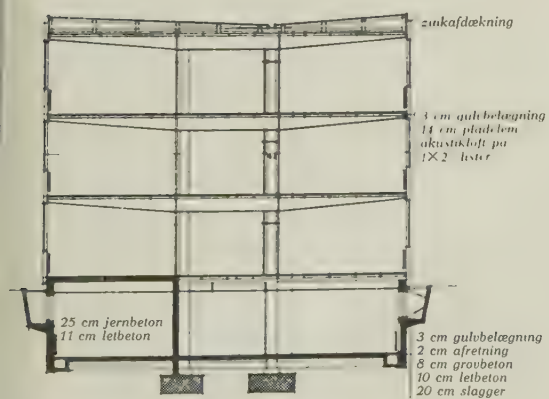 zinkafdækning
3 cm gulvbelægning
14 cm pladelem
akustikloft pa
1×2 lister
25 cm jernbeton
11 cm letbeton
3 cm gulvbelægning
2 cm afretning
8 cm grovbeton
10 cm letbeton
20 cm slagger